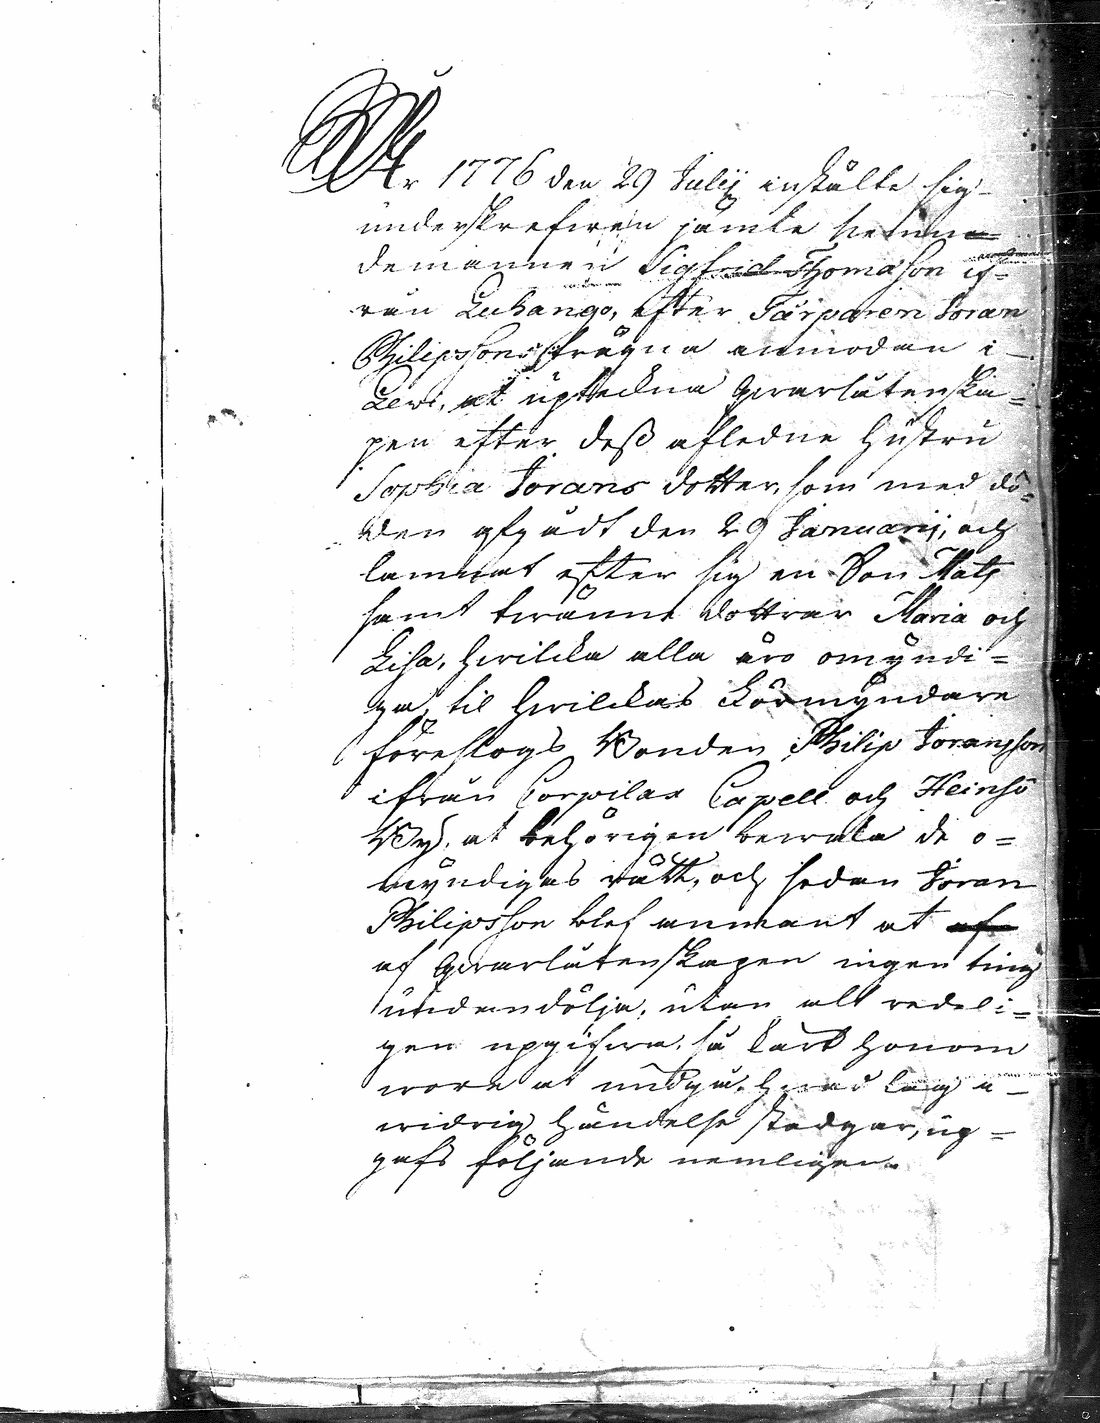 År 1776 den 29 Julij instälte sig
underskrefwen jämte nemn=
demannen Sigfrid Thomasson if=
rån Luhango, efter Tårparen Jöran
Philipssons trägna anmodan i
Lewi, at upteckna Qwarlåtenska=
pen efter dess afledne Hustru
Sophia Jörans dotter, som med dö=
den afgådt den 29 Januarij, och
lämnat efter sig en Son Mats
samt twänne dottrar Maria och
Lisa, hwilcka alla äro omyndi=
ga, til hwilckas Förmyndare
föreslogs Bonden Philip Jöransson
ifrån Corpilax Capell och Heinsö
By, at behörigen bewaka de o=
myndigas rätt, och sedan Jöran
Philipsson blef anmant at af
af Qwarlåtenskapen ingen ting
undandölja, utan alt redeli=
gen upgifwa, så kärt honom
wore at undgå, hwad lag i
widrig händelse stadgar, up=
gafs följande nemligen.